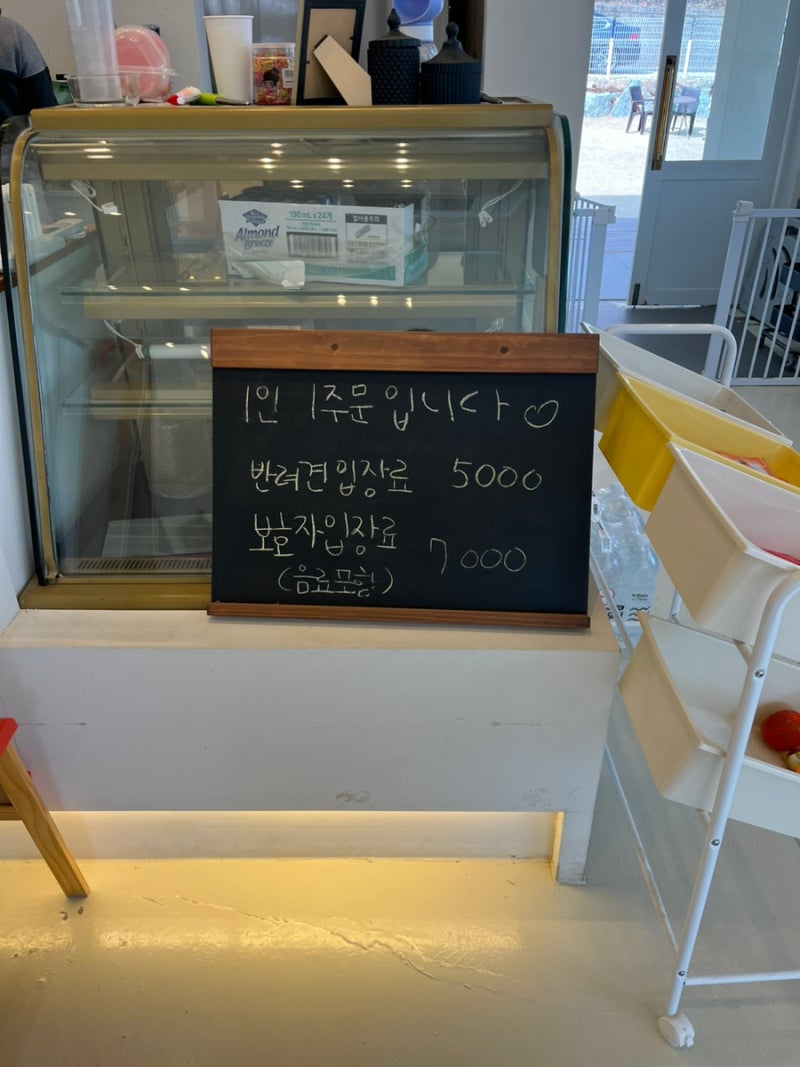 Almond
Breeze
190 mL x 24개
1인 1주문입니다
반려견입장료 5000
보호자입장료 7000
(음료포함)